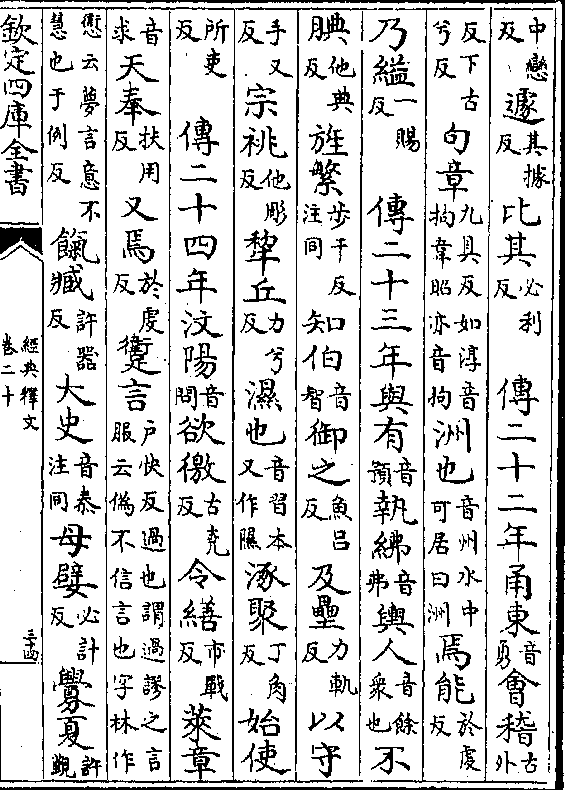 中戀反遽其據反比其必利反　傳二十二年甬東音勇會稽古外
反下古兮反句章九具反如淳音拘韋昭亦音拘洲也音州水中可居曰洲焉能於虔反
乃縊一賜反　傳二十三年與有音預執紼音弗輿人音餘衆也不
腆他典反旌繁步干反注同知伯音智御之魚呂反及壘力軌反以守
手又反宗祧他彫反犂丘力兮反濕也音習本又作隰涿聚丁角反始使
所吏反　傳二十四年汶陽音問欲徼古堯反令繕市戰反萊章
音求天奉扶用反又焉於虔反躗言戶快反過也謂過謬之言服云偽不信言也字林作
㦣云夢言意不慧也于例反餼臧許器反大史音泰注同母嬖必計反釁夏許覲
欽定四庫全書
經典釋文
卷二十